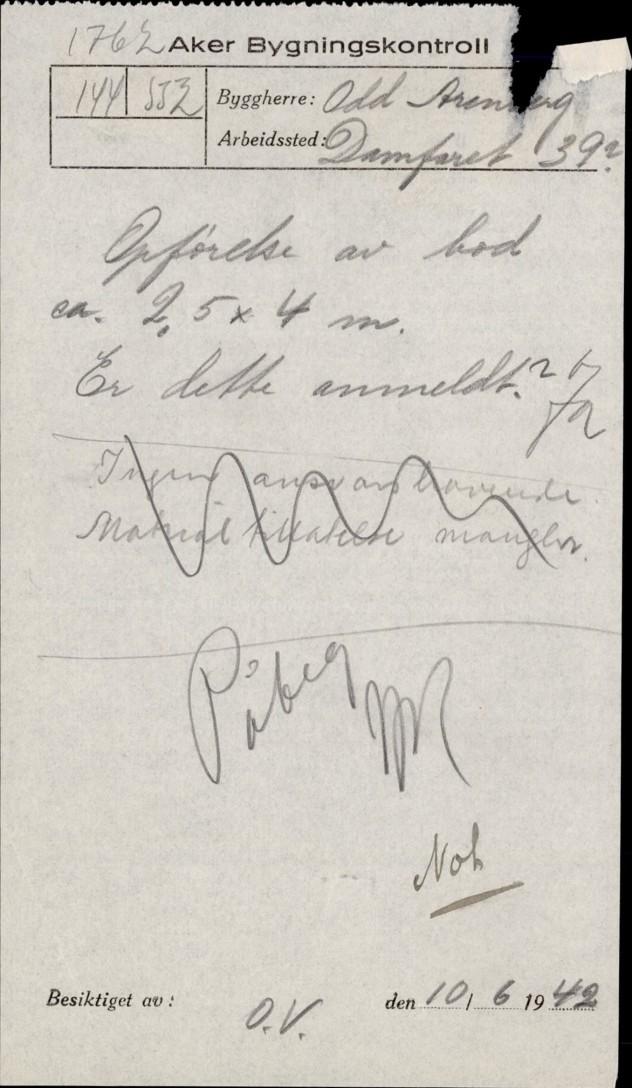 1762 Aker Bygningskontroll
144 552
Byggherre: Odd
Arbeidssted: Damfaret 39
Opförelse av bod
ca. 2,5 x 4 m.
Er dette anmeldt.
Ja
Ingen ansvarshavende.
Material tillatelse mangler.
Påbeg
Not
Besiktiget av: O.V. den 10/6 1942